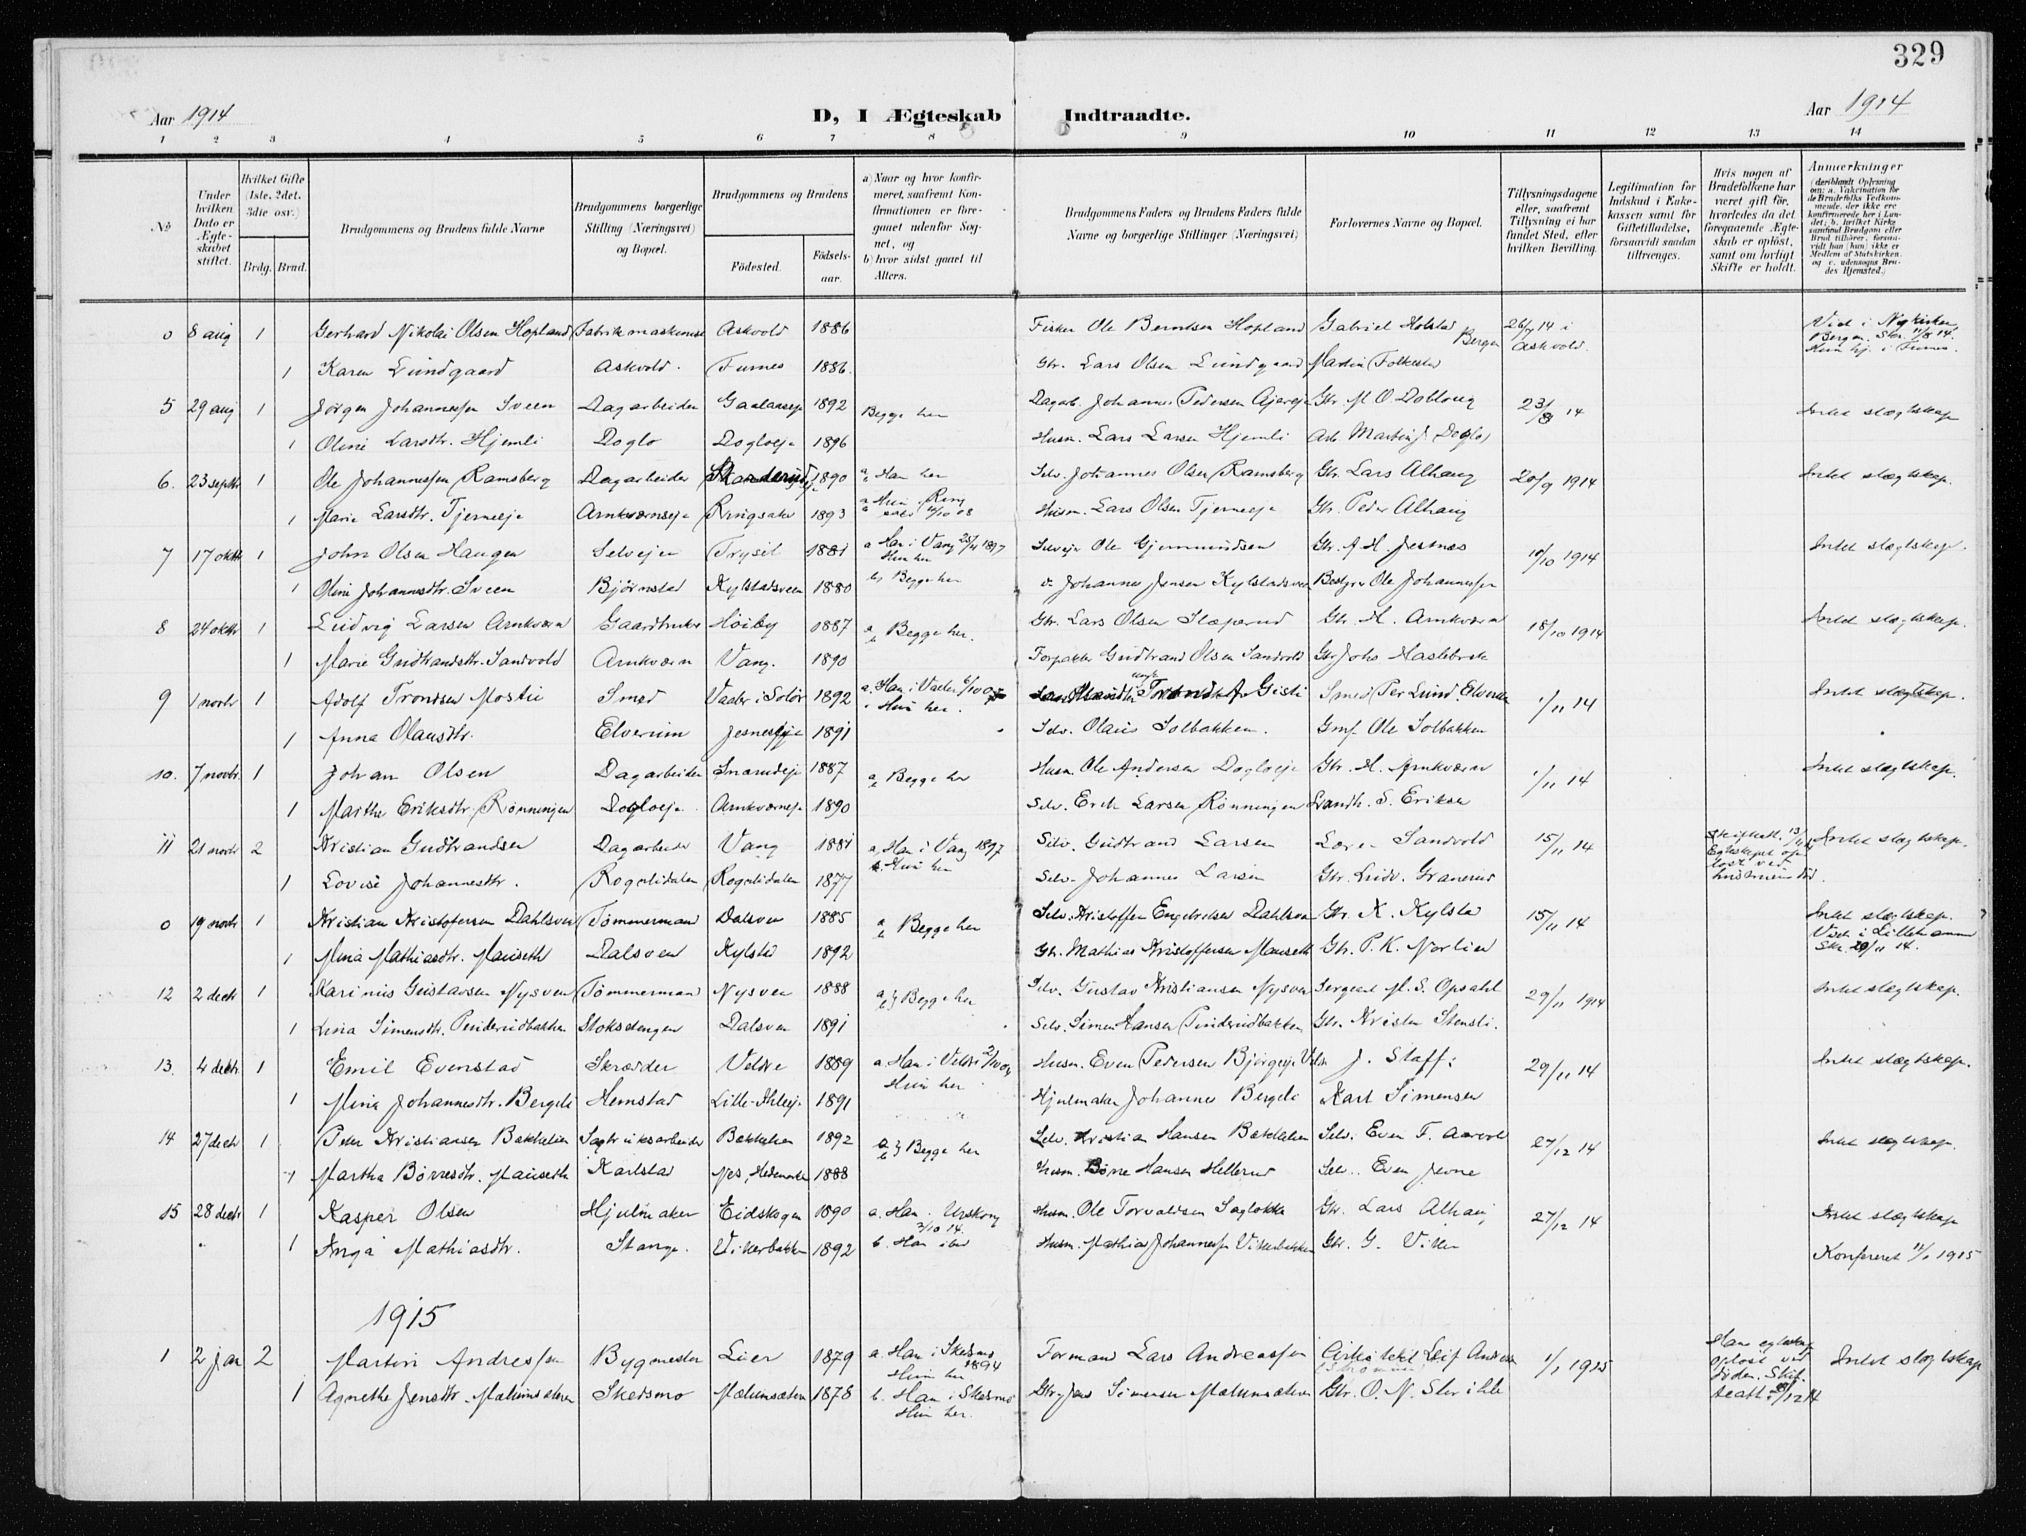 329
Aar 1914
D, I Ægteskab Indtraadte.
Aar 1914
1 2 3 4 5 6 7 8 9 10 11 12 13 14
No
Under hvilken Dato er Ægteskabet stiftet.
Hvilket Gifte (1ste, 2det, 3die osv.)
Brdg. Brud.
Brudgommens og Brudens fulde Navne
Brudgommens borgerlige Stilling (Næringsvei) og Bopæl.
Brudgommens og Brudens
Fødested.
Fødselsaar.
a) Naar og hvor konfirmeret, saafremt Konfirmationen er foregaaet udenfor Sognet, og
b) hvor sidst gaaet til Alters.
Brudgommens Faders og Brudens Faders fulde Navne og borgerlige Stillinger (Næringsvei)
Forlovernes Navne og Bopæl.
Tillysningsdagene eller, saafremt Tillysning ei har fundet Sted, efter hvilken Bevilling.
Legitimation for Indskud i Enkekassen samt for Giftetilladelse, forsaavidt saadan tiltrænges.
Hvis nogen af Brudefolkene har været gift før, hvorledes da det foregaaende Ægteskab er opløst, samt om lovligt Skifte er holdt.
Anmærkninger (deriblandt Oplysning om: a. Vakcination for de Brudefolks Vedkommende, der ikke ere konfirmerede her i Landet; b. hvilket Kirkesamfund Brudgom eller Brud tilhører, forsaavidt han (hun) ikke er Medlem af Statskirken, og c. udensogns Brudes Hjemsted.)
0 8 aug 1 Gerhard Nikolai Olsen Hopland Askvold 1886 Fisker Ole Berntsen Hopland Gabriel Holstad Bergen 26/7 14 i Askvold. Viet i Nykirken, Bergen. Skr. 11/8 14. Hun hj. i Furnes.
1 Karen Lundgaard Askvold. Furnes 1886. Gbr. Lars Olsen Lundgaard Martin Folkestad
5 29 aug 1 Jørgen Johannessen Sveen Dagarbeider 1892 Begge her Dagarb. Johannes Pedersen Gbr. M. O. Doblong 23/8 14 Intet slægtskap
1 Oline Larsdtr. Hjemli Doglo Dogloeje 1896 Husm. Lars Larsen Hjemli Arb. Martin J. Doglo
6. 23 septbr 1 Ole Johannessen Ramsberg Dagarbeider 1890 a. Han her Selv. Johannes Olsen Ramsberg Gbr. Lars Alhaug 20/9 1914 Intet slægtskap.
1 Marie Larsdtr. Tjerneeje Arnkværnseje Ringsaker 1893 Husm. Lars Olsen Tjerneeje Gbr. Peder Alhaug
7 17 oktbr 1 John Olsen Haugen Selvejer Trysil 1881 a Han i Vang 25/4 1897 Hun her Selvejer Ole Gjermundsen Gbr. A. H. Jesnes 10/10 1914 Intet slægtskap.
1 Oline Johannesdtr. Sveen Bjørnstad Kylstadsveen 1880 b) Begge her Johannes Jensen Kylstadsveen Bestyrer Ole Johannessen
8 24 oktbr 1 Ludvig Larsen Arnkværn Gaardbruker Høiby 1887 a b Begge her. Gbr. Lars Olsen Gbr. H. Arnkværn 18/10 1914 Intet slægtskap.
1 Marie Gudbrandsdtr. Sandvold Arnkværn Vang. 1890 Forpakter Gudbrand Olsen Sandvold Gbr Johs Haslebrek
9 1 novbr 1 Adolf Trondsen Mostu Smed Vaaler i Solør 1892 Hun her. Smed Per Lund Elverum 1/11 14 Intet slægtskap.
1 Anna Olausdtr. Elverum Jesneseje 1891 Selv. Olaus Solbakken. Gmf. Ole Solbakken
10. 7 novbr. 1 Johan Olsen Dagarbeider 1887 a b Begge her Husm. Ole Andersen Dogloeje Gbr. H. Arnkværn 1/11 14 Intet slægtskap.
1 Marthe Eriksdtr. Rønningen Dogloeje Arnkværneje 1890 Selv. Erik Larsen Rønningen Landh. S. Eriksen
11 21 novbr 2 Kristian Gudbrandsen Dagarbeider Vang 1881 a. Han i Vang 1897 Hun her Selv. Gudbrand Larsen Sandvold 15/11 14 Intet slægtskap.
1 Lovise Johannesdtr. Rogalidalen Rogalidalen 1877 Selv. Johannes Larsen Gbr. Ludv. Granerud
0 19 novbr 1 Kristian Kristofersen Dahlsven Tømmermand Dalsven 1885 a b Begge her Selv. Kristoffer Engebretsen Dahlsven Gbr. K. Kylstad 15/11 14 Intet slægtskap. Viet i Lillehammer Skr. 20/11 14.
1 Mina Mathiasdtr. Mauseth Dalsven Kylstad 1892 Gbr. Mathias Kristoffersen Mauseth Gbr. P. K. Norlien
12 2 decbr 1 Karinius Gustavsen Nysven Tømmermand Nysven 1888 a b } Begge her Selv. Gustav Kristiansen Nysven Sergeant M. S. Opsahl 29/11 1914 Intet slægtskap.
1 Lina Simensdtr. Pinderudbakken Stoksengen Dalsven 1891 Selv. Simen Hansen Pinderudbakken Gbr. Kristen Stensli.
13. 4 decbr 1 Emil Evenstad Skrædder Veldre 1889 a. Han i Veldre Hun her Husm. Even Pedersen Bjørgeeje Veldre J. Staff: 29/11 14 Intet slægtskap.
1 Mina Johannesdtr. Bergeli Hemstad 1891 Hjulmaker Johannes Bergeli Karl Simensen
14 27 decbr 1 Peter Kristiansen Bakkelien Bakkelien 1892 a b } Begge her Selv. Kristian Hansen Bakkelien Selv. Even F. 27/12 14 Intet slægtskap.
1 Martha Børresdtr. Mauseth Karlstad Nes, Hedemarken 1888 Husm. Børre Hansen Hellerud Selv. Even Jevne
15 28 decbr 1 Kasper Olsen Hjulmaker Eidskogen 1890 a. Han i Urskoug 2/10 14. Husm. Ole Torvaldsen Saglokka Gbr. Lars Alhaug 27/12 14 Intet slægtskap
" 1 Inga Mathiasdtr. Stange. Vikerbakken 1892 b. Han ibid Husm. Mathias Johannessen Vikerbakken Gbr. G. Viker Konfereret 11/1 1915
1915
1 2 jan 2 Martin Andressen Bygmester Lier 1879 a. Han i Skedsmo 1894 Hun her Formand Lars Andreassen Arkitekt Leif Andresen 1/1 1915 Hans egteskap opløst ved døden. Skifteatt. Intet slægtskap
1 Agnethe Jensdtr. Mælumsæteren Skedsmo Mælumsæteren 1878 b. Han i Skedsmo Hun her. Gbr Jens Simensen Mælumsæteren Gbr. O. N.